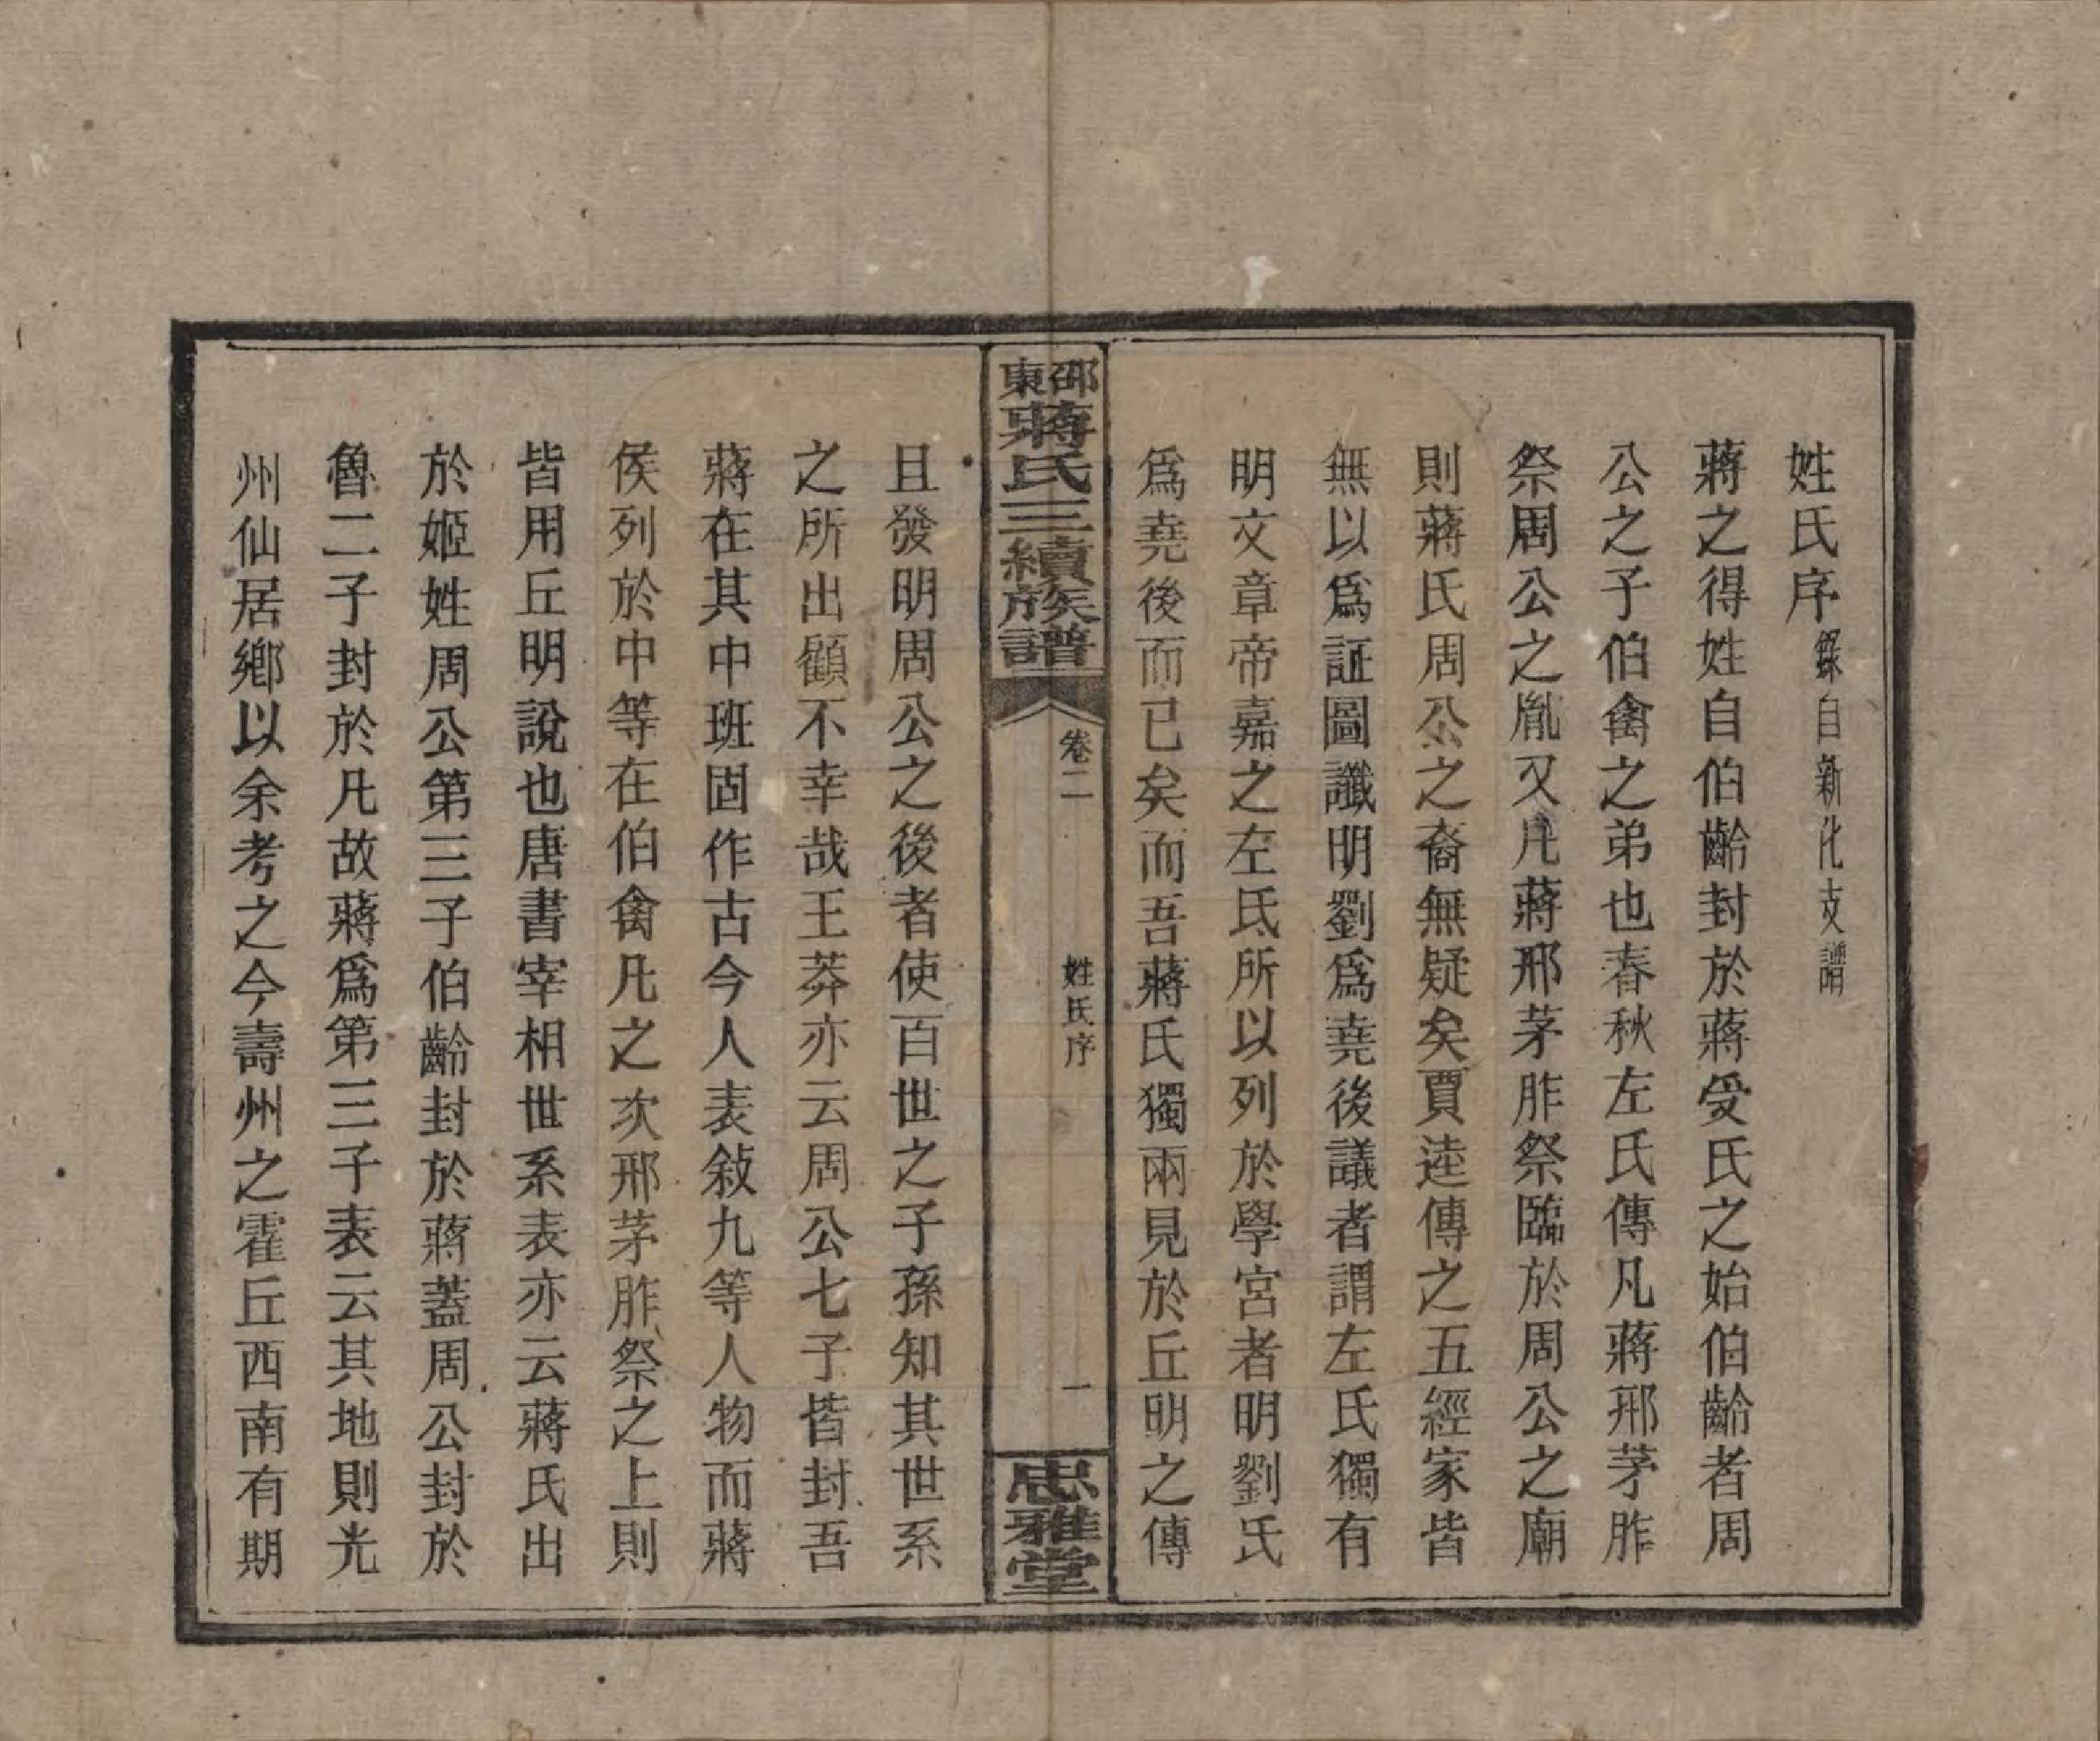 姓氏序錄自新化支譜
蔣之得姓自伯齡封於蔣受氏之始伯齡者周
公之子伯禽之弟也春秋左氏傳凡蔣邢茅胙
祭周公之胤又凡蔣邢茅胙祭臨於周公之廟
則蔣氏周公之裔無疑矣賈逵傳之五經家皆
無以爲証圖讖明劉爲堯後議者謂左氏獨有
明文章帝嘉之左氏所以列於學宮者明劉氏
爲堯後而已矣而吾蔣氏獨兩見於丘明之傳
邵東蔣氏三續族譜
卷二
姓氏序
一
忠雅堂
且發明周公之後者使百世之子孫知其世系
之所出顧不幸哉王莽亦云周公七子皆封吾
蔣在其中班固作古今人表敍九等人物而蔣
侯列於中等在伯禽凡之次邢茅胙祭之上則
皆用丘明說也唐書宰相世系表亦云蔣氏出
於姬姓周公第三子伯齡封於蔣蓋周公封於
魯二子封於凡故蔣爲第三子表云其地則光
州仙居鄉以余考之今壽州之霍丘西南有期